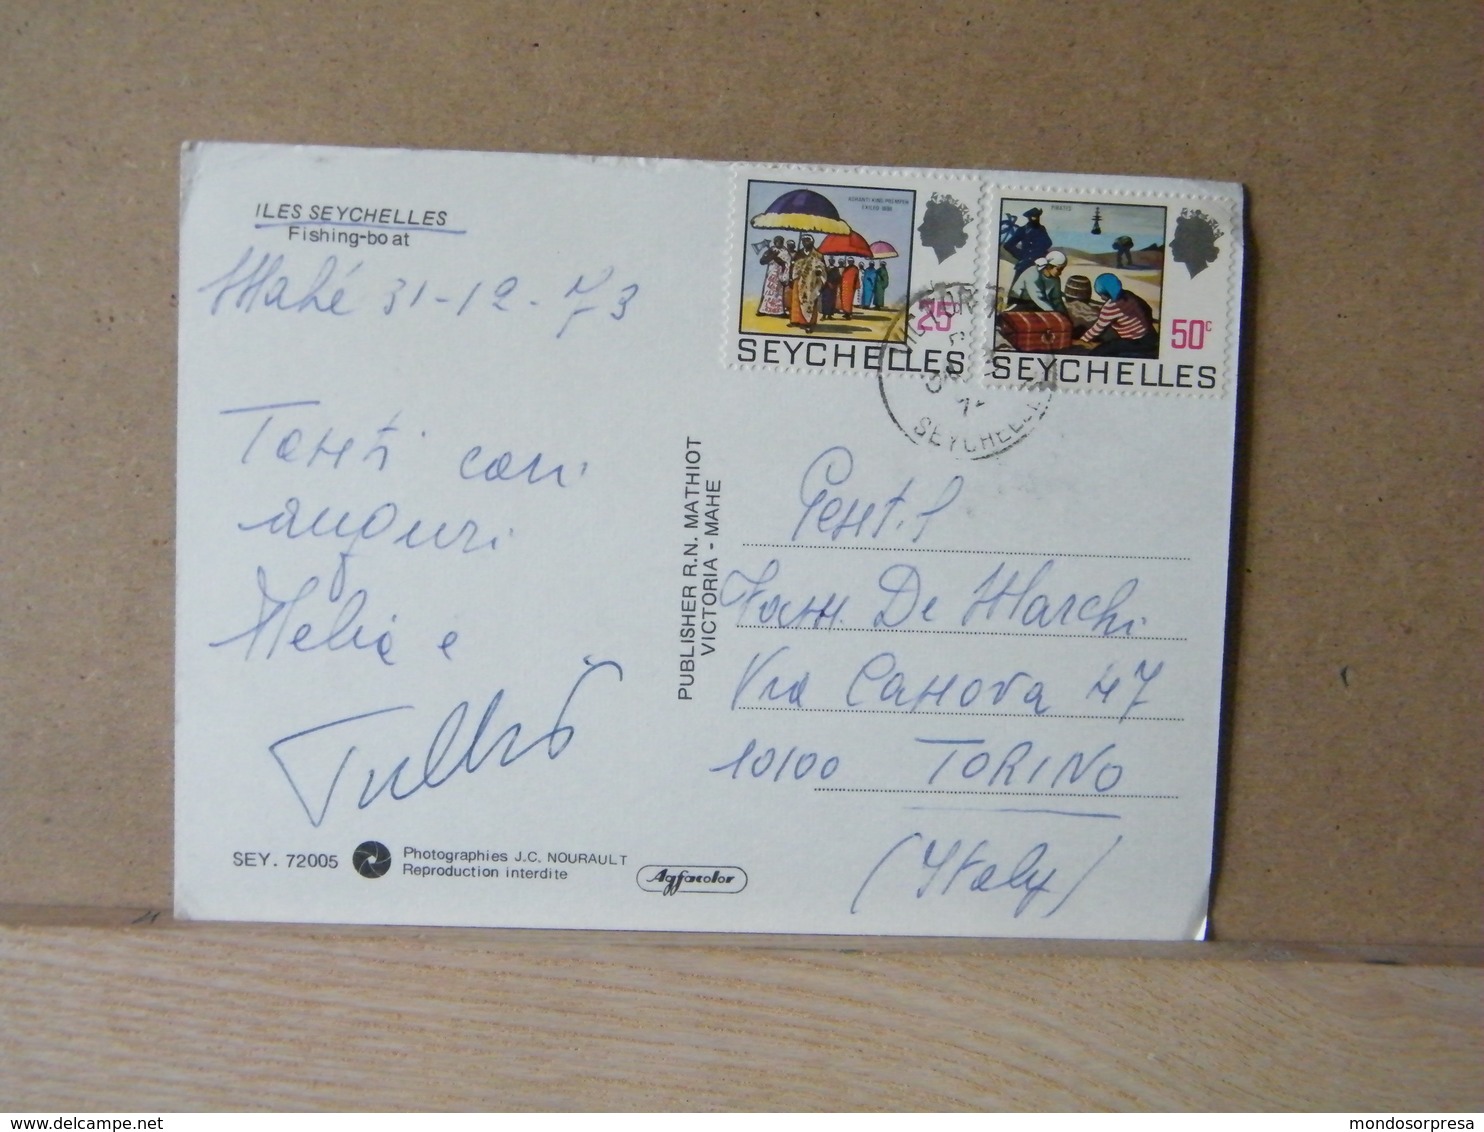 ILES SEYCHELLES
Fishing-boat
Mahé 31-12-73
Tanti cari
auguri
e
Tullio
SEY. 72005
Photographies J.C. NOURAULT
Reproduction interdite
Agfacolor
PUBLISHER R.N. MATHIOT
VICTORIA - MAHE
ASHANTI KING PREMPEH
EXILED 1896
25c
SEYCHELLES
PIRATES
50c
SEYCHELLES
VICTORIA
SEYCHELLES
Gent.l
Fam. De Marchi
Via Canova 47
10100 TORINO
(Italy)
www.delcampe.net
mondosorpresa